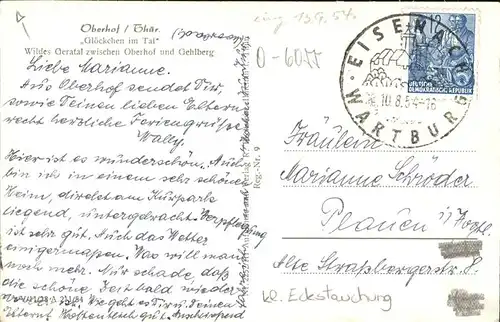 Oberhof / Thür.
„Glöckchen im Tal"
Wildes Geratal zwischen Oberhof und Gehlberg
Liebe Marianne.
Aus Oberhof sendet Dir,
sowie Deinen lieben Eltern
recht herzliche Feriengrüsse
Wally.
Hier ist es wunderschön. Auch
bin ich in einem sehr schönen
Heim, direkt am Kurpark
liegend, untergebracht. Verpflegung
ist sehr gut. Auch das Wetter
einigermaßen. Was will man
noch mehr. Nur schade, daß
die schöne Zeit bald wieder
Wie geht es Dir u. Deinen
Eltern? Hoffentlich gut.
Reg.-Nr. 9
eing 13.8.54.
O-6055
EISENACH
WARTBURG
10.8.54-18
12
DEUTSCHE
DEMOKRATISCHE REPUBLIK
Fräulein
Marianne Schröder
Plauen i. Vogtl.
Alte Straßbergerstr. 8.
kl. Eckstauchung